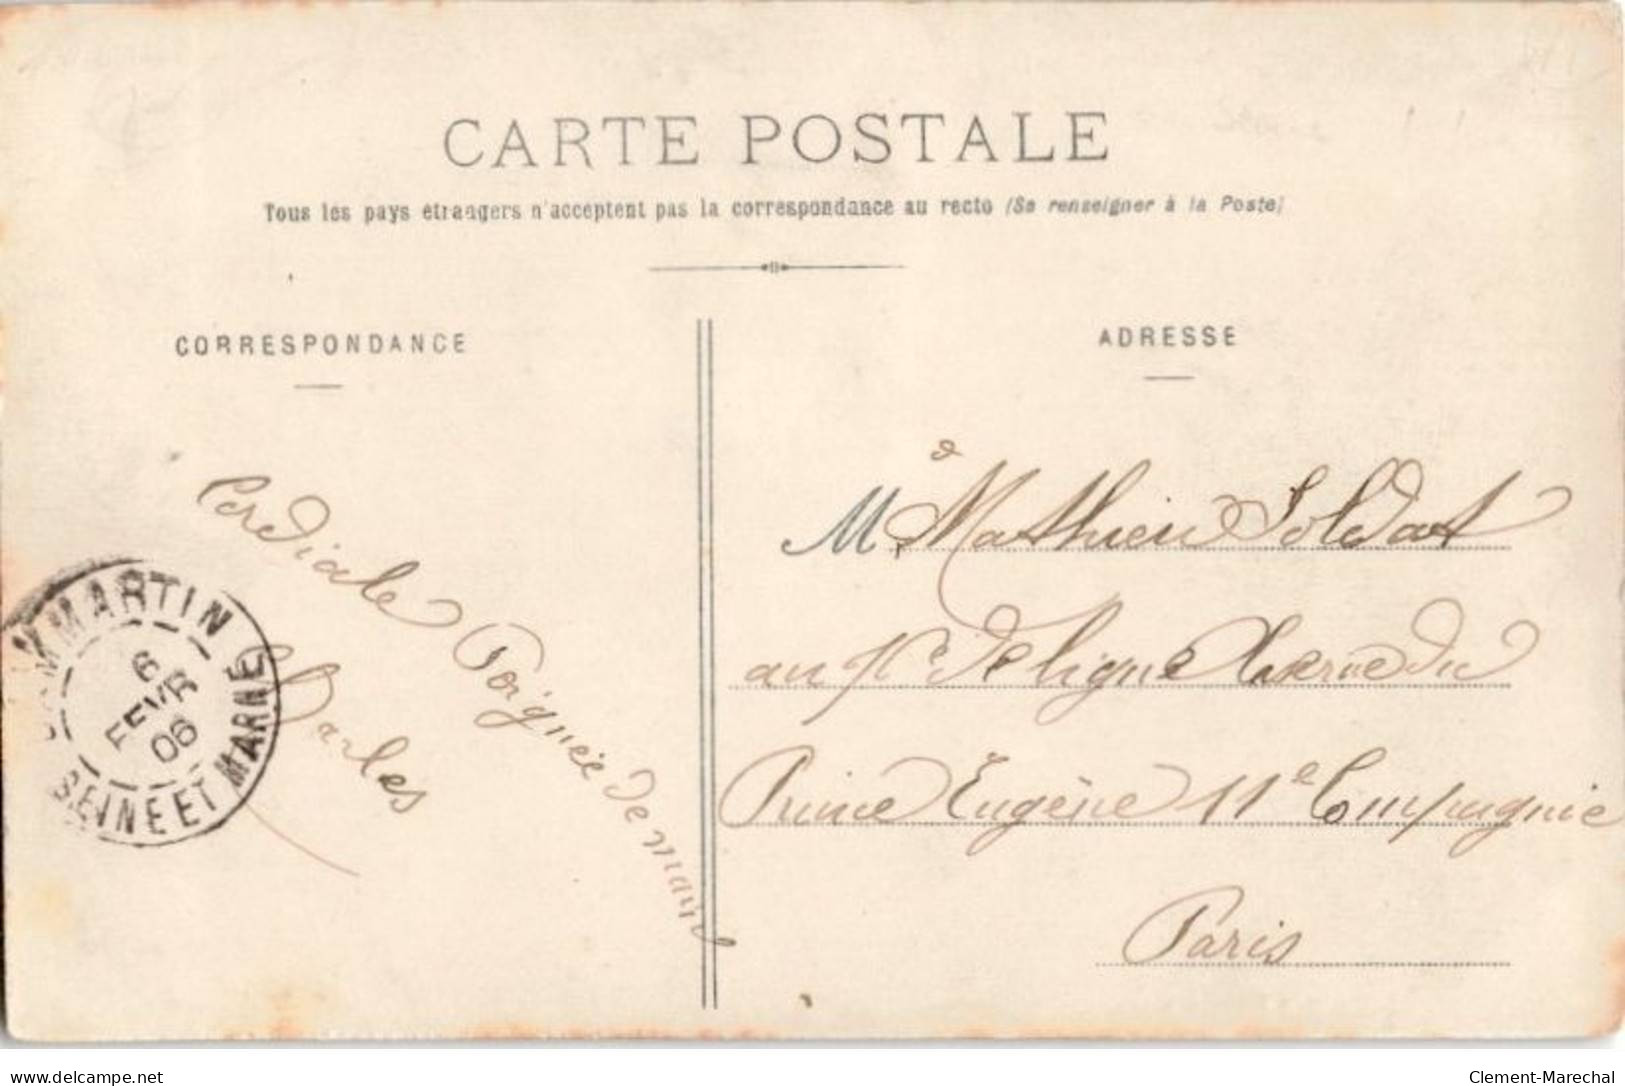 CARTE POSTALE
Tous les pays étrangers n'acceptent pas la correspondance au recto (Se renseigner à la Poste)
CORRESPONDANCE
Cordiale Poignée de main
Charles
MMARTIN
6
FEVR
06
SEINE ET MARNE
ADRESSE
M Mathieu Soldat
au de ligne Caserne du
Prince Eugène 11e Compagnie
Paris
delcampe.net
Clement-Marechal